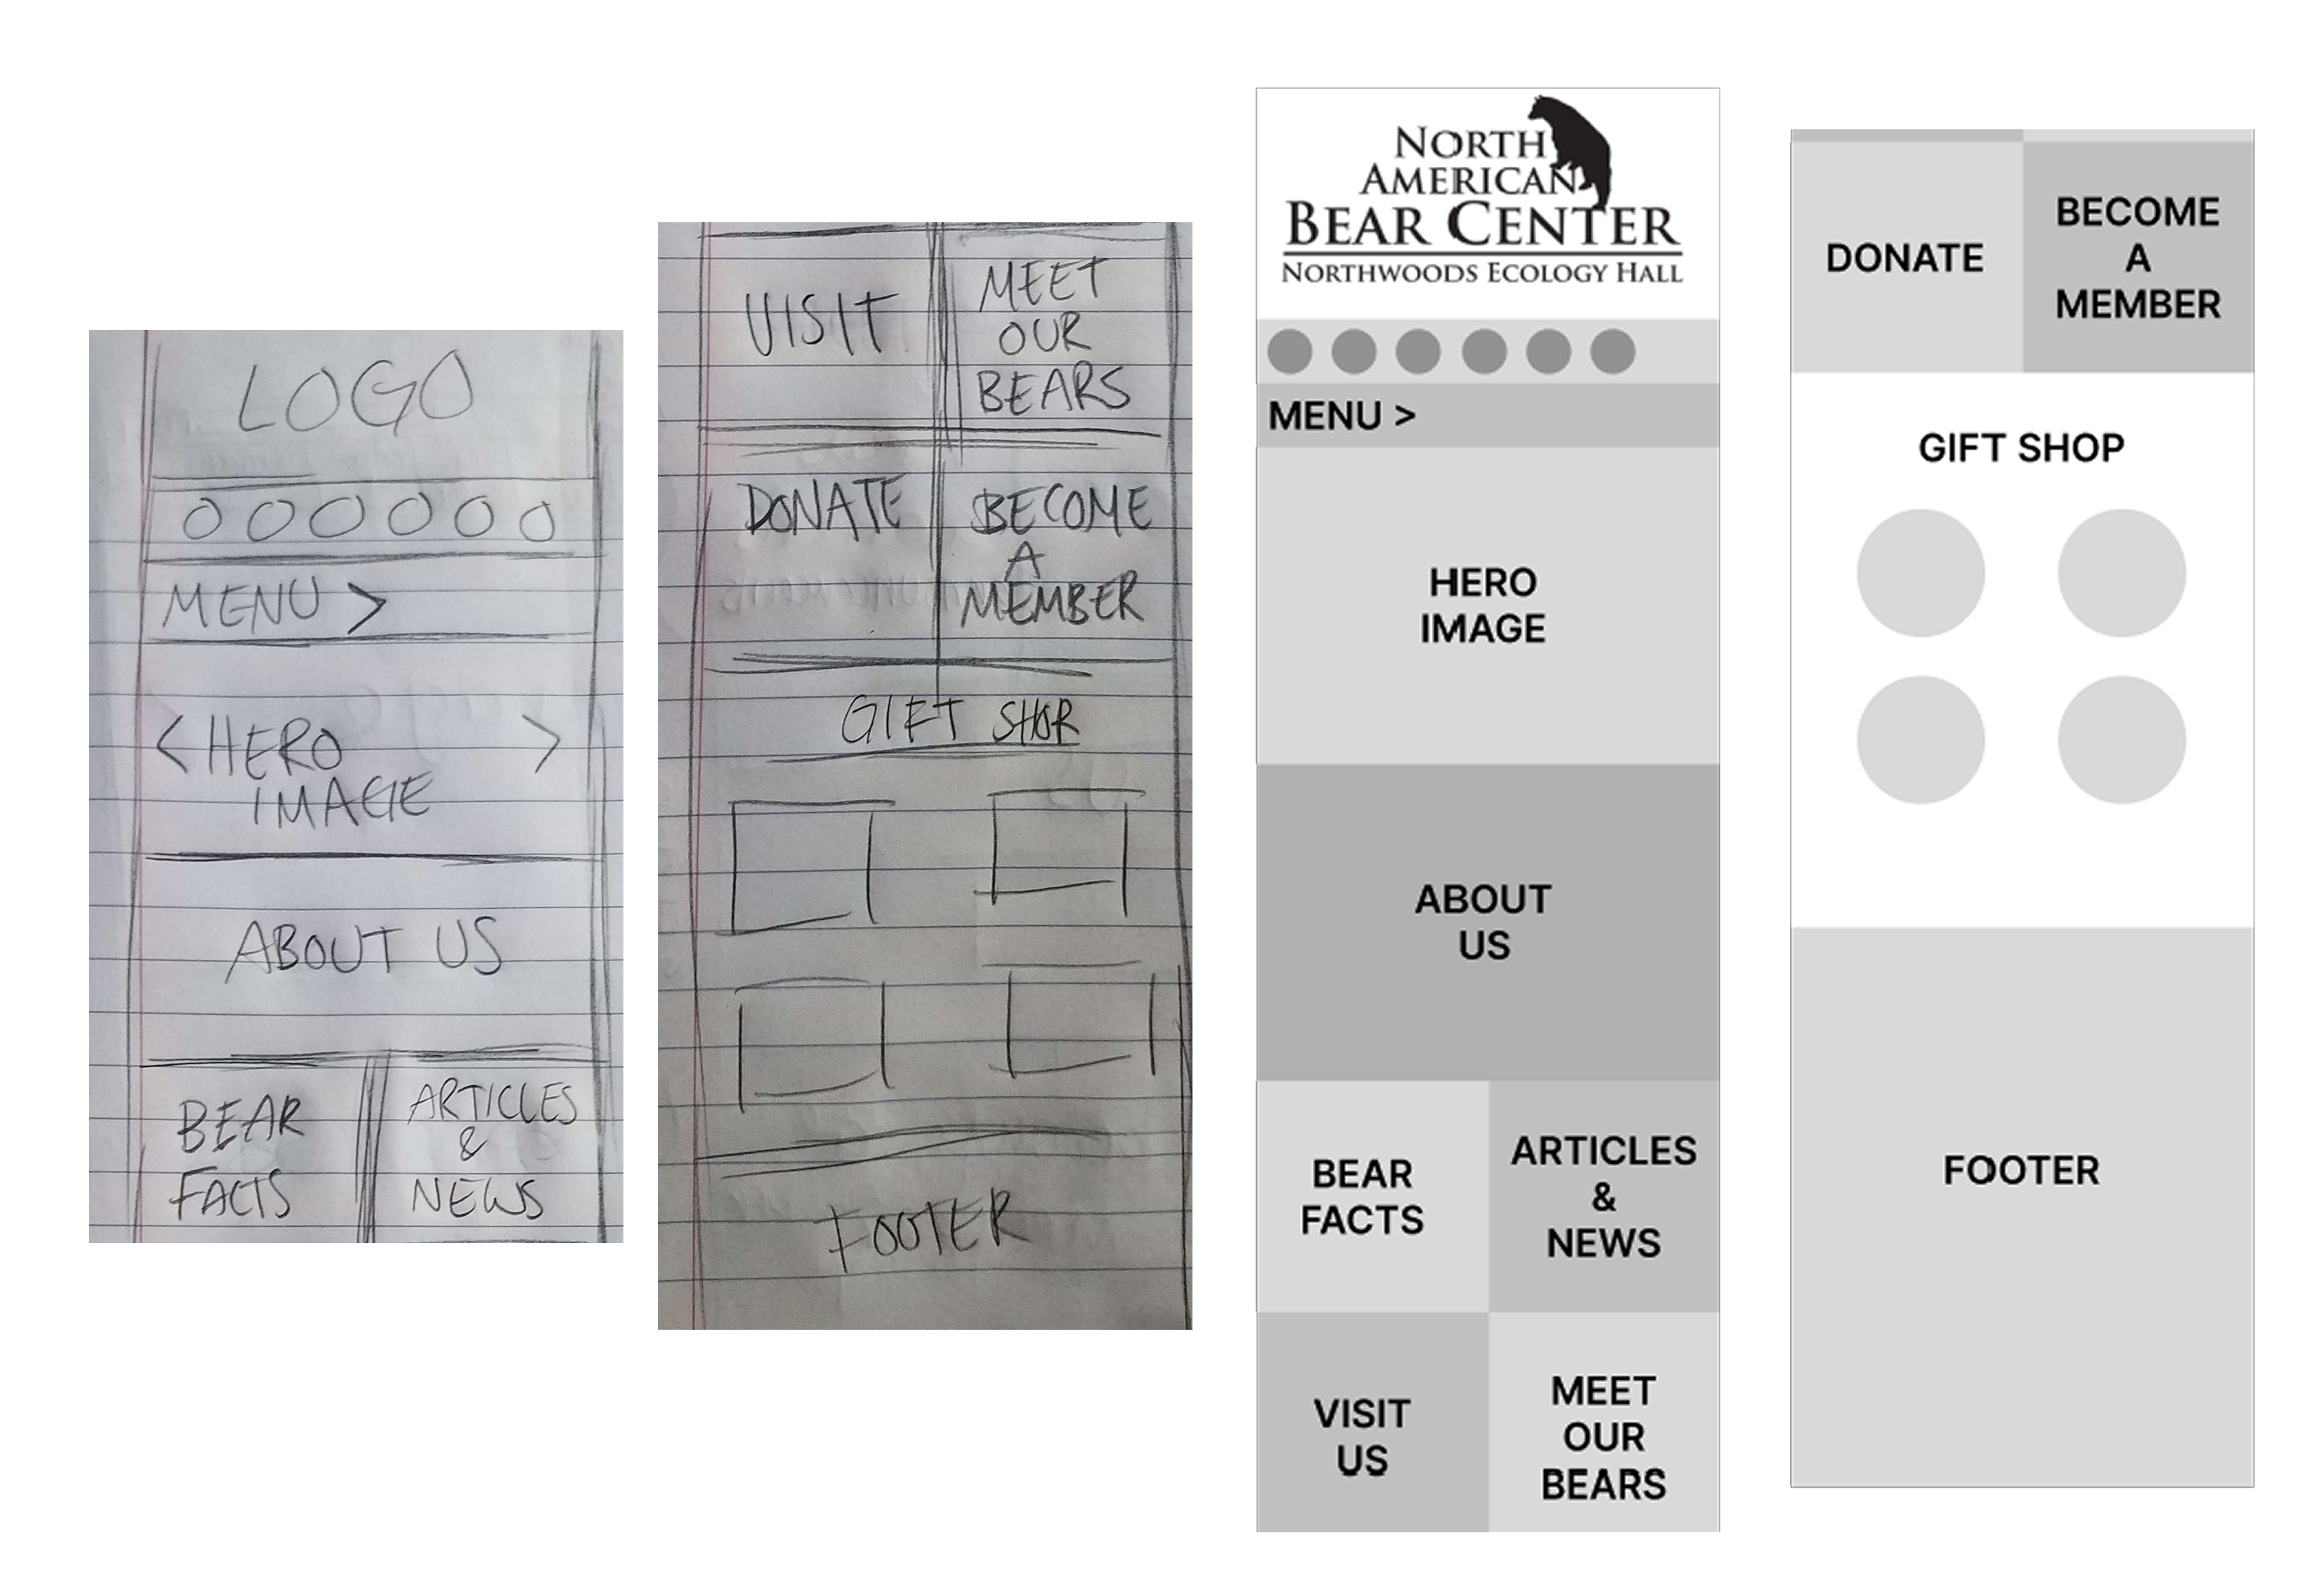 LOGO
OOOOOO
MENU >
< HERO >
IMAGE
ABOUT US
BEAR
FACTS
ARTICLES
&
NEWS
VISIT
MEET
OUR
BEARS
DONATE
BECOME
A
MEMBER
GIFT SHOP
FOOTER
NORTH
AMERICAN
BEAR CENTER
NORTHWOODS ECOLOGY HALL
MENU >
HERO
IMAGE
ABOUT
US
BEAR
FACTS
ARTICLES
&
NEWS
VISIT
US
MEET
OUR
BEARS
DONATE
BECOME
A
MEMBER
GIFT SHOP
FOOTER